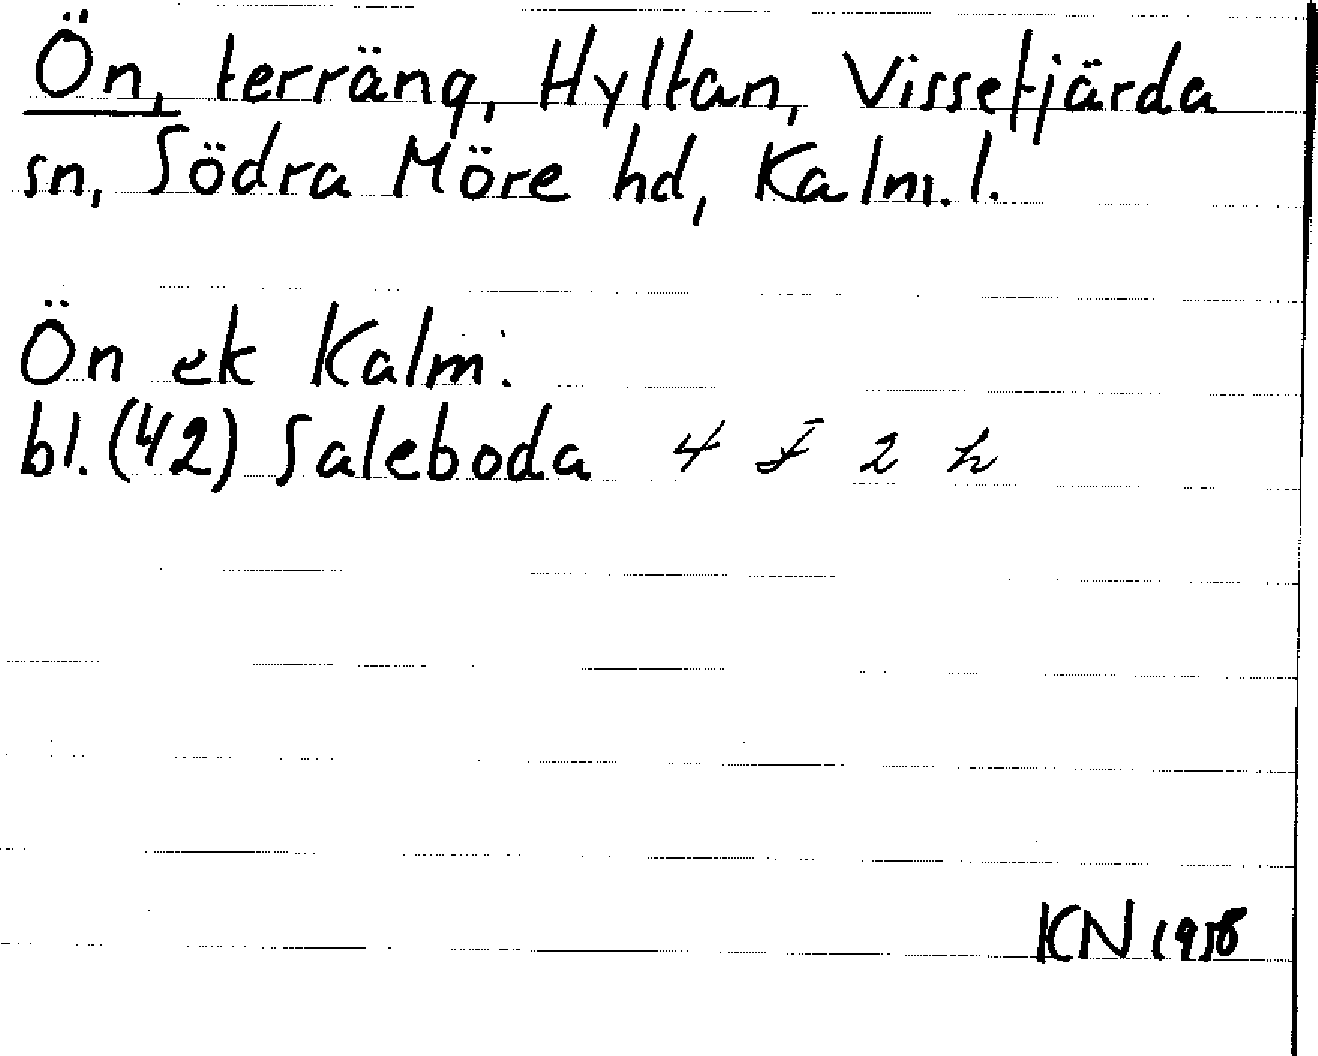 Ön, terräng, Hyltan, Vissefjärda
sn, Södra Möre hd, Kalm. l.
Ön ek Kalm.
bl. (42) Saleboda 4 F 2 h
KN 1958